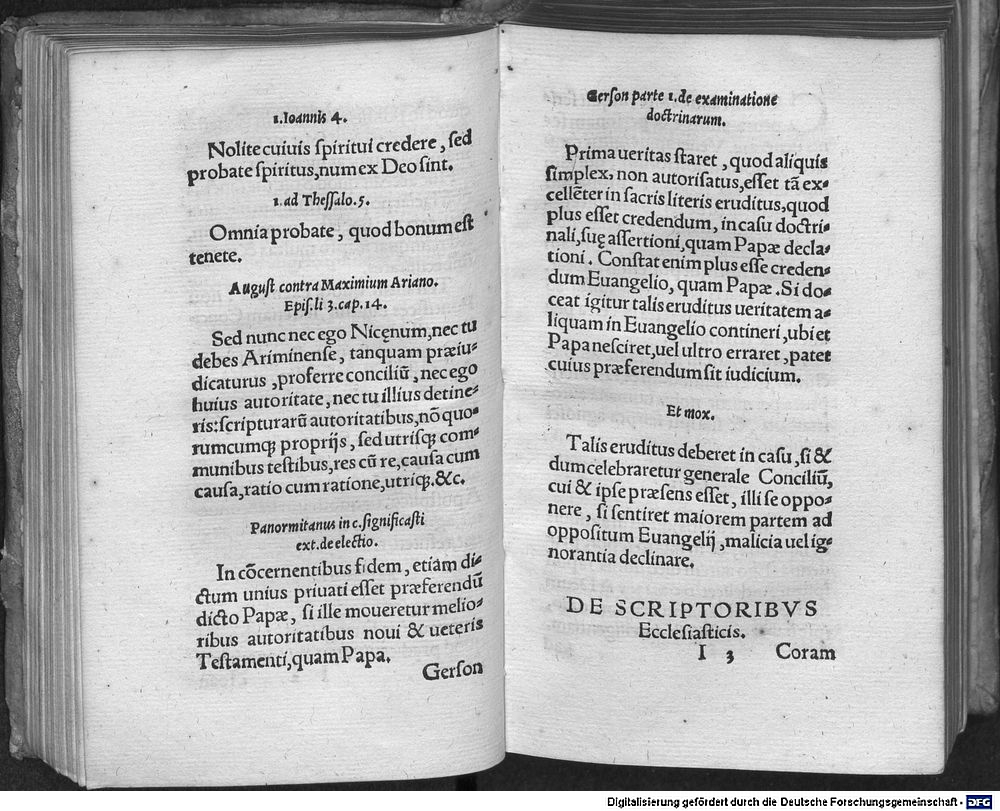 1.Ioannis 4.
Nolite cuiuis ſpiritui credere, ſed
probate ſpiritus, num ex Deo ſint.
1.ad Theſſalo.5.
Omnia probate, quod bonum eſt
tenete.
Auguſt contra Maximium Ariano.
Epiſ.li 3.cap.14.
Sed nunc nec ego Nicęnum, nec tu
debes Ariminenſe, tanquam præiu-
dicaturus, proferre conciliũ, nec ego
huius autoritate, nec tu illius detine-
ris: ſcripturarũ autoritatibus, nõ quo-
rumcumqꝫ proprijs, ſed utriſqꝫ com-
munibus teſtibus, res cũ re, cauſa cum
cauſa, ratio cum ratione, utriqꝫ.&c.
Panormitanus in c.ſignificaſti
ext.de electio.
In cõcernentibus fidem, etiam di-
ctum unius priuati eſſet præferendũ
dicto Papæ, ſi ille moueretur melio-
ribus autoritatibus noui & ueteris
Teſtamenti, quam Papa.
Gerſon
Gerſon parte 1.de examinatione
doctrinarum.
Prima ueritas ſtaret, quod aliquis
ſimplex, non autoriſatus, eſſet tã ex-
cellẽter in ſacris literis eruditus, quod
plus eſſet credendum, in caſu doctri-
nali, ſuę aſſertioni, quam Papæ decla-
tioni. Conſtat enim plus eſſe creden-
dum Euangelio, quam Papæ. Si do-
ceat igitur talis eruditus ueritatem a-
liquam in Euangelio contineri, ubi et
Papa neſciret, uel ultro erraret, patet
cuius præferendum ſit iudicium.
Et mox.
Talis eruditus deberet in caſu, ſi &
dum celebraretur generale Conciliũ,
cui & ipſe præſens eſſet, illi ſe oppo-
nere, ſi ſentiret maiorem partem ad
oppoſitum Euangelij, malicia uel ig-
norantia declinare.
DE SCRIPTORIBVS
Eccleſiaſticis.
I 3 Coram
Digitalisierung gefördert durch die Deutsche Forschungsgemeinschaft - DFG